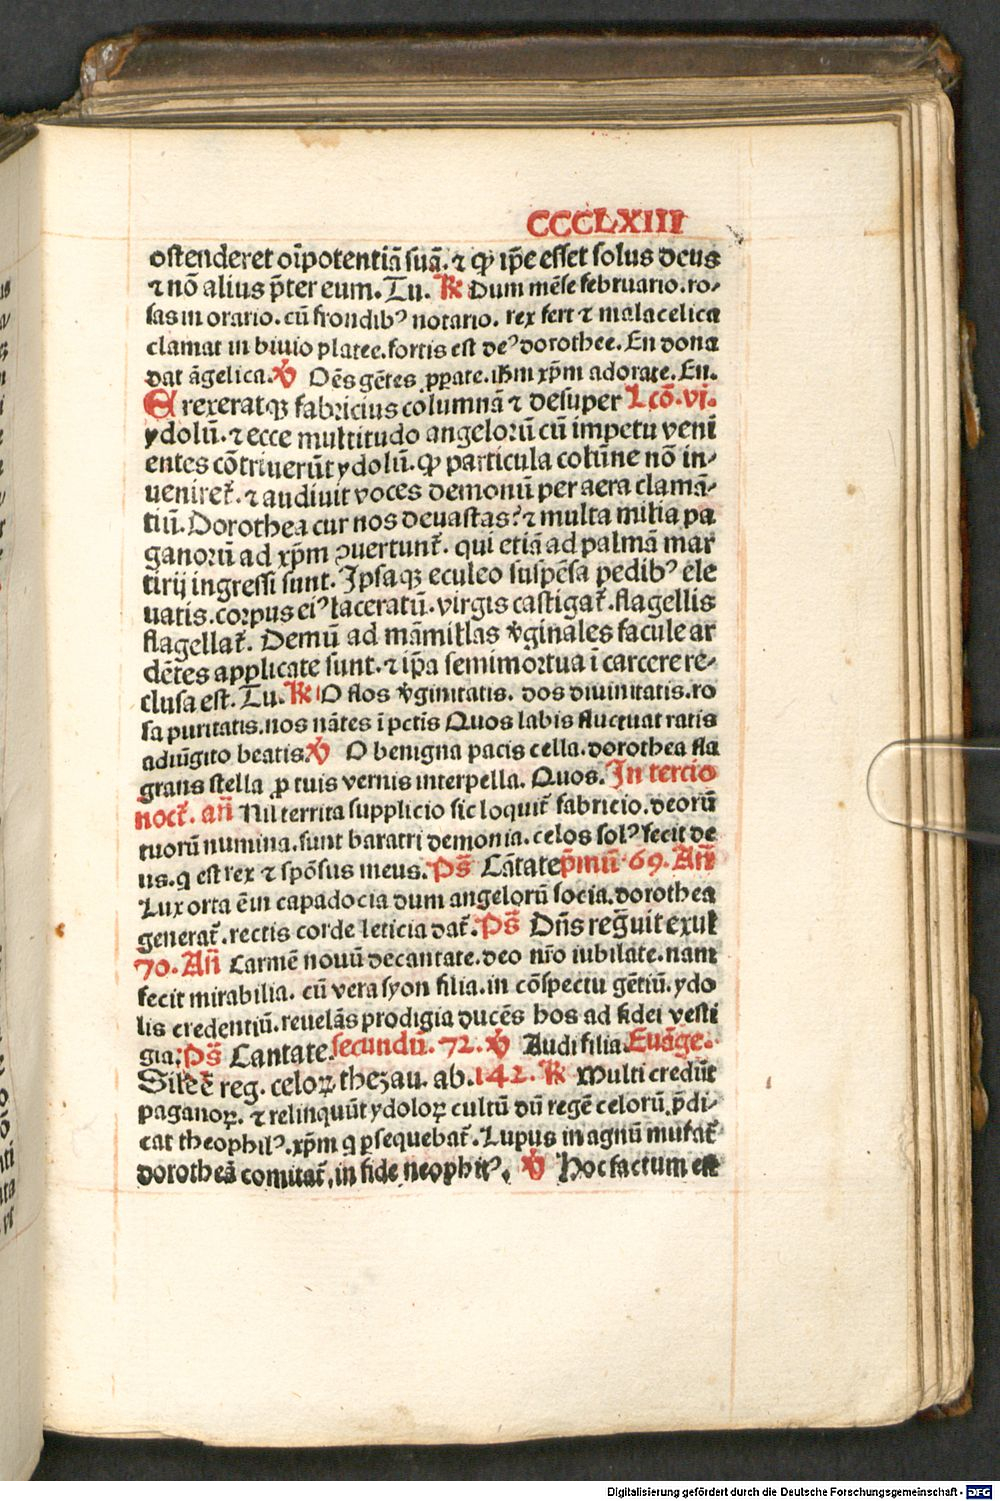 CCCLXIII
ostenderet oīpotentiā suā. ⁊ ꝙ ip̄e esset solus deus
⁊ nō alius p̄ter eum. Tu. ℟ Dum mēse februario. ro-
sas in orario. cū frondibꝰ notario. rex fert ⁊ mala celica
clamat in biuio platee. fortis est deꝰ dorothee. En dona
dat āgelica. ℣ Oēs gētes ꝓperate. ihm xp̄m adorate. En.
E rexeratqꝫ fabricius columnā ⁊ desuper Lcō. vi.
ydolū. ⁊ ecce multitudo angeloꝝ cū impetu veni
entes cōtriuerūt ydolū. ꝙ particula colūne nō in-
ueniret᷑. ⁊ audiuit voces demonū per aera clamā-
tiū. Dorothea cur nos deuastas? ⁊ multa milia pa
ganorū ad xp̄m ꝯuertunt᷑. qui etiā ad palmā mar
tirij ingressi sunt. Ipsaqꝫ eculeo suspēsa pedibꝰ ele
uatis. corpus eiꝰ laceratū. virgis castigat᷑. flagellis
flagellat᷑. Demū ad māmillas v̄ginales facule ar
dētes applicate sunt. ⁊ ip̄a semimortua ī carcere re-
clusa est. Tu. ℟ O flos v̄ginitatis. dos diuinitatis. ro
sa puritatis. nos nātes ī pctīs Quos labis fluctuat ratis
adiūgito beatis. ℣ O benigna pacis cella. dorothea fla
grans stella ꝓ tuis vernis interpella. Quos. In tercio
noct᷑. an̄ Nil territa supplicio sic loquit᷑ fabricio. deorū
tuorū numina. sunt baratri demonia. celos solꝰ fecit de
us. q est rex ⁊ spōsus meus. Ps̄ Cātate p̄mū 69. An̄
Lux orta ē in capadocia dum angelorū socia. dorothea
generat᷑. rectis corde leticia dat᷑. Ps̄ Dn̄s regn̄uit exul
70. An̄ Carmē nouū decantate. deo nr̄o iubilate. nam
fecit mirabilia. cū vera syon filia. in cōspectu gētiū. ydo
lis credentiū. reuelās prodigia ducēs hos ad fidei vesti
gia. Ps̄ Cantate. secundū. 72. ℣ Audi filia. Euāge.
Silē ē reg. celoꝝ thezau. ab. 142. ℟ Multi credūt
paganoꝝ. ⁊ relinquūt ydoloꝝ cultū dū regē celorū p̄di-
cat theophilꝰ. xp̄m q ꝑsequebat᷑. Lupus in agnū mutat᷑
dorotheā comitat᷑, in fide neophitꝰ. ℣ Hoc factum est
Digitalisierung gefördert durch die Deutsche Forschungsgemeinschaft - DFG